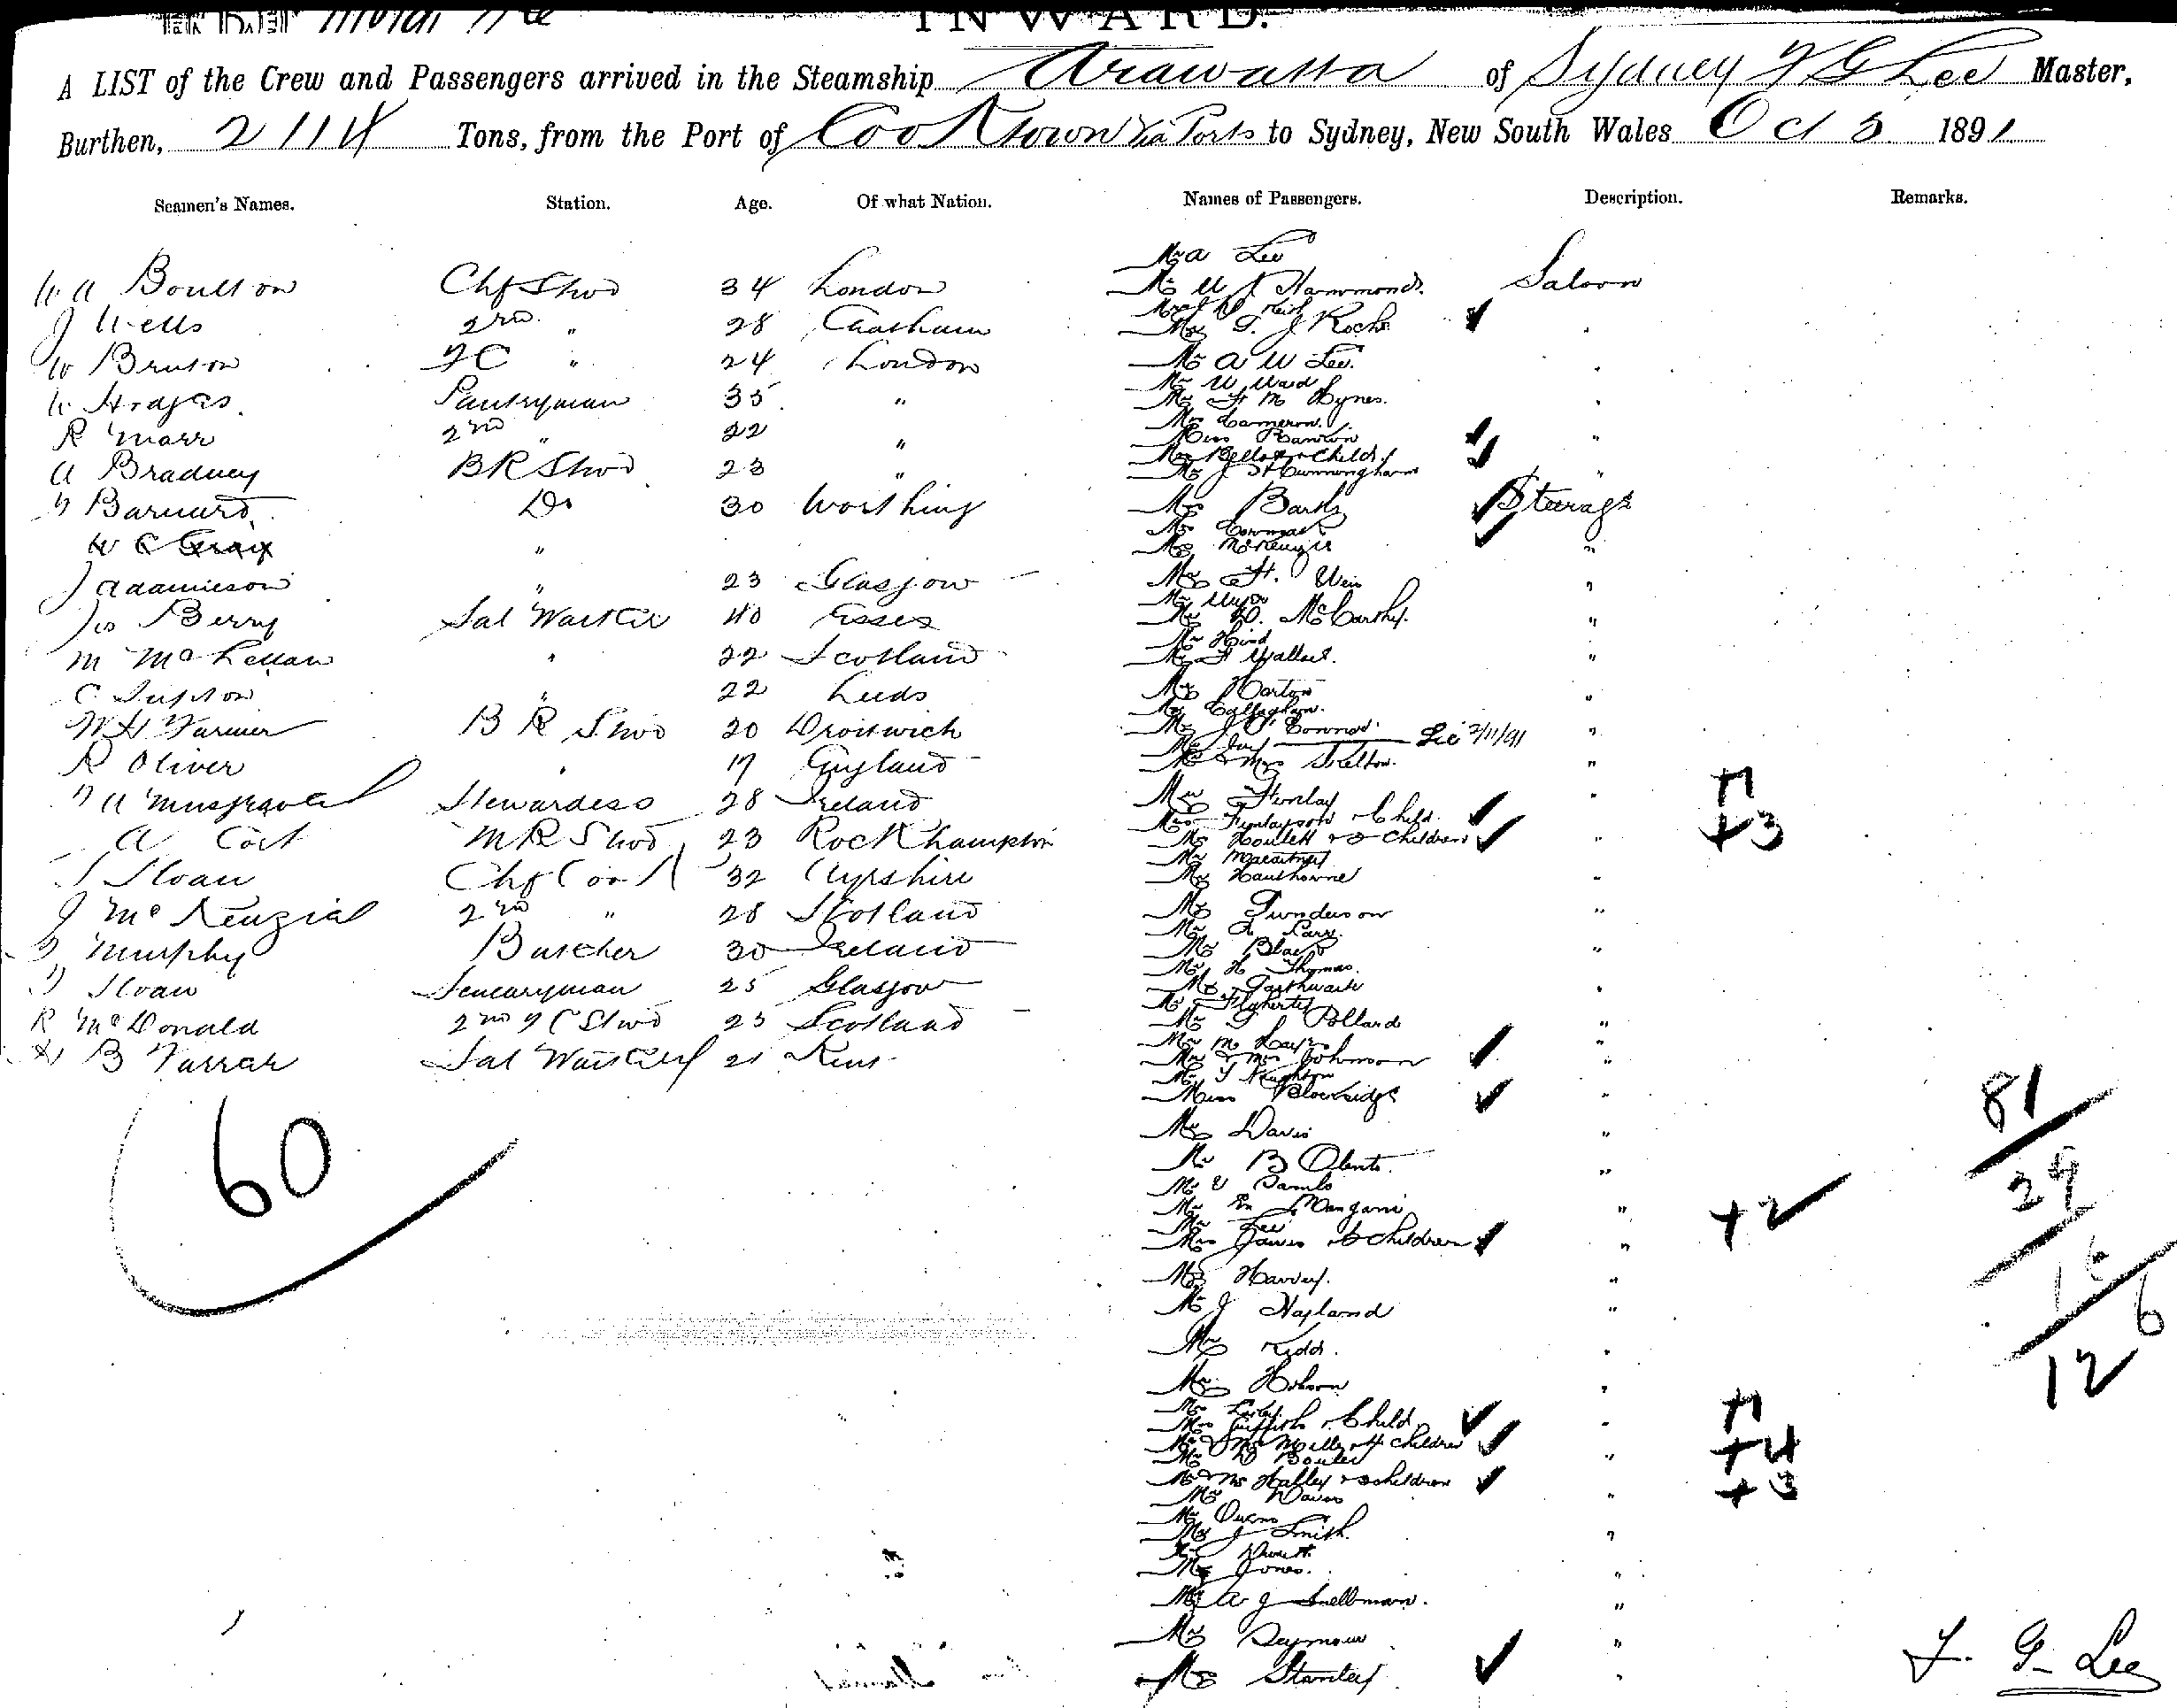 INWARD.
A LIST of the Crew and Passengers arrived in the Steamship Arawatta of Sydney F G Lee Master,
Burthen, 2114 Tons, from the Port of Cooktown via Ports to Sydney, New South Wales Oct 5 1891
Seamen's Names. Station. Age. Of what Nation. Names of Passengers. Description. Remarks.
W A Boulton Chf Stwd 34 London
J Wells 2nd " 28 Chatham
W Bruton FC " 24 London
W Hodges Pantryman 35 "
R Marr 2nd " 22 "
A Bradney BR Stwd 23 "
Barnard Do 30 Worthing
W C Gray "
J Adamieson " 23 Glasgow
Jas Berry Sal Waiter 40 Essex
M McLellan " 22 Scotland
C " 22 Leeds
W H Farmer B R Stwd 20 Droitwich
R Oliver " 17 England
A Musgrave Stewardess 28 Ireland
A Cort MR Stwd 23 Rockhampton
J Sloan Chf Cook 32 Ayrshire
J McKenzie 2nd " 28 Scotland
Murphy Butcher 30 Ireland
Sloan 25 Glasgow
R McDonald 2nd FC Stwd 25 Scotland
H B Farrar Sal Waiter 21 Kent
60
Mr A Lee
Mr W J Hammond Saloon
Mr T. J Roche
Mr A W Lee.
Mr W Ward
Mr H M Hynes.
Mr Cameron.
Miss Rankin
Mrs Bell & Child
Mr J St Cunningham
Mr Banks Steerage
Mr Cormack
Mrs McKenzie "
Mr H. Weir "
Mr Myers
Mr D. McCarthy. "
Mr Hind
Mr F Wallace. "
Mr Horton "
Mr Callaghan.
Mr J O'Connor. "
Mr & Mrs Skelton. "
Mr Finlay "
Mrs Finlayson & Child +1
Mrs Houlett & 3 Children " +3
Mr Macartney
Mr Hawthorne "
Mr Gunderson "
Mr A Parr.
Mr Black "
Mr H Thomas.
Mr Garthwaite "
Mr Flaherty
Mr G Pollard "
Mr M Hayes "
Mr & Mrs Johnson "
Mr T Naughton
Miss Blowridge "
Mr Davis "
Mr B Olento. "
Mr Mangani "
Mr Lee
Mrs James & 2 Children " +2
Mr Harvey. "
Mr J Hayland "
Mr Kidd. "
Mr Hobson "
Mrs Griffith & Child " +1
Mr & Mrs Mills & 4 Children +4
Mr D Bowler "
Mr & Mrs Halley & 3 children +3
Mr Davis "
Mr Owens
Mr J Smith. "
Mr Jones. "
Mr A J Snellman. "
Mr Seymour "
Mr Stanley "
81
29
16
6
12
F. G. Lee